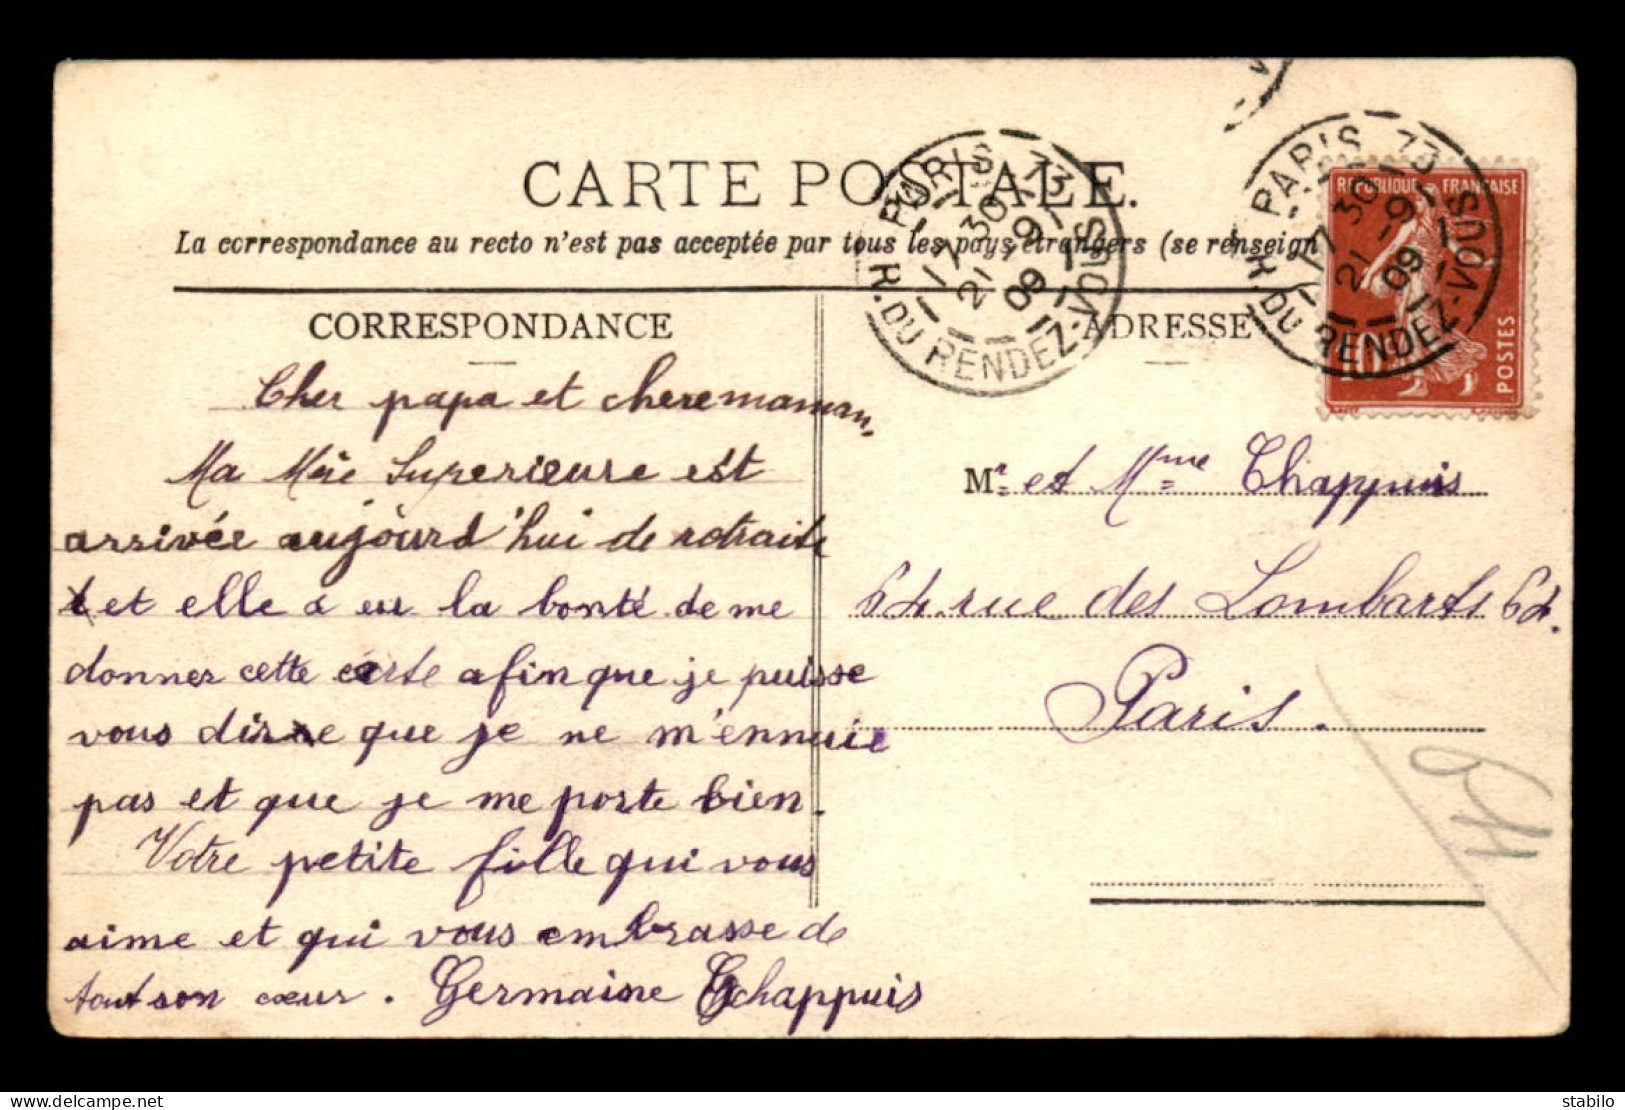 CARTE POSTALE.
La correspondance au recto n'est pas acceptée par tous les pays étrangers (se renseign
PARIS - 73
17 30
21 - 9
09
R. DU RENDEZ-VOUS
PARIS 73
17 30
21 - 9
09
R. DU RENDEZ-VOUS
REPUBLIQUE FRANÇAISE
10
POSTES
CORRESPONDANCE
ADRESSE
Cher papa et cheremaman,
Ma Mère Superieure est
arrivée aujourd'hui de retraite
et elle a eu la bonté de me
donner cette carte afin que je puisse
vous dire que je ne m'ennuie
pas et que je me porte bien.
Votre petite fille qui vous
aime et qui vous embrasse de
tout son cœur. Germaine Chappuis
Mr et Mme Chappuis
64 rue des Lombarts 64.
Paris.
stabilo